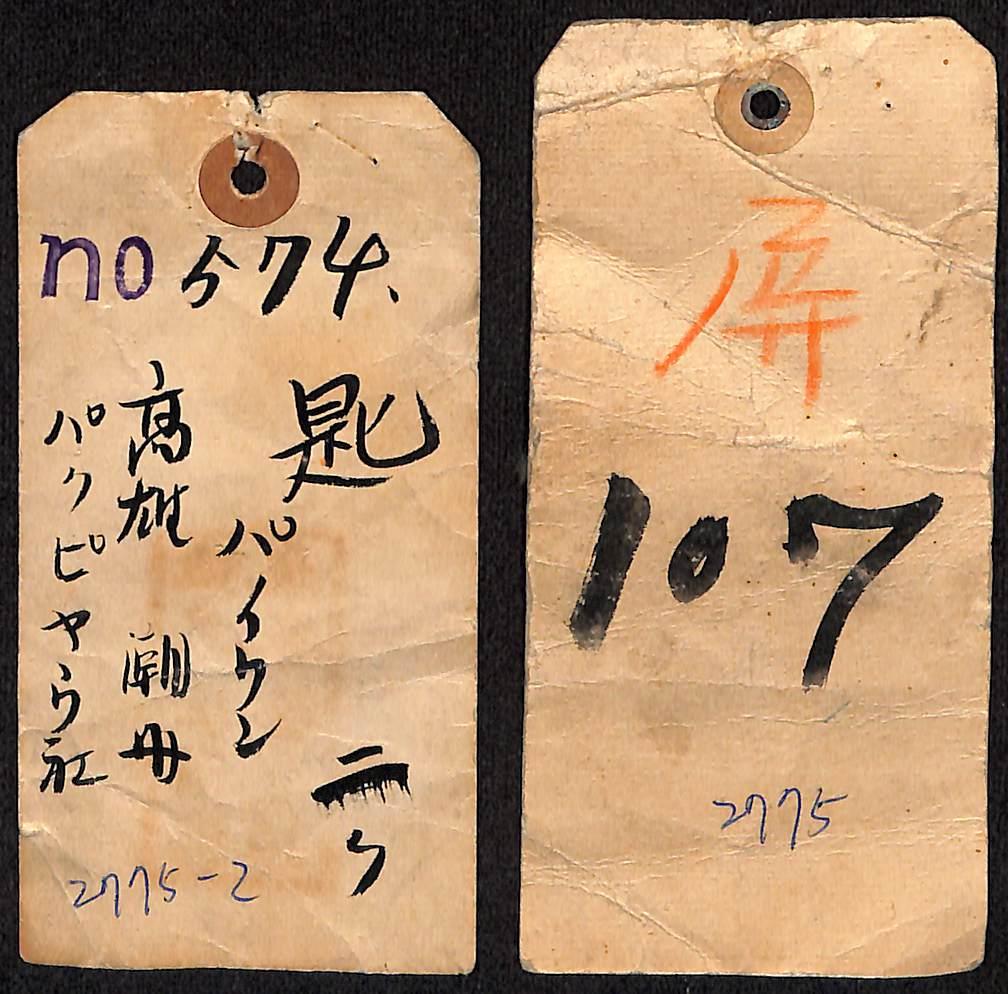 no 574.
匙
パイウン
二ケ
高雄 潮州
パクピヤウ社
2775-2
屏
107
2775